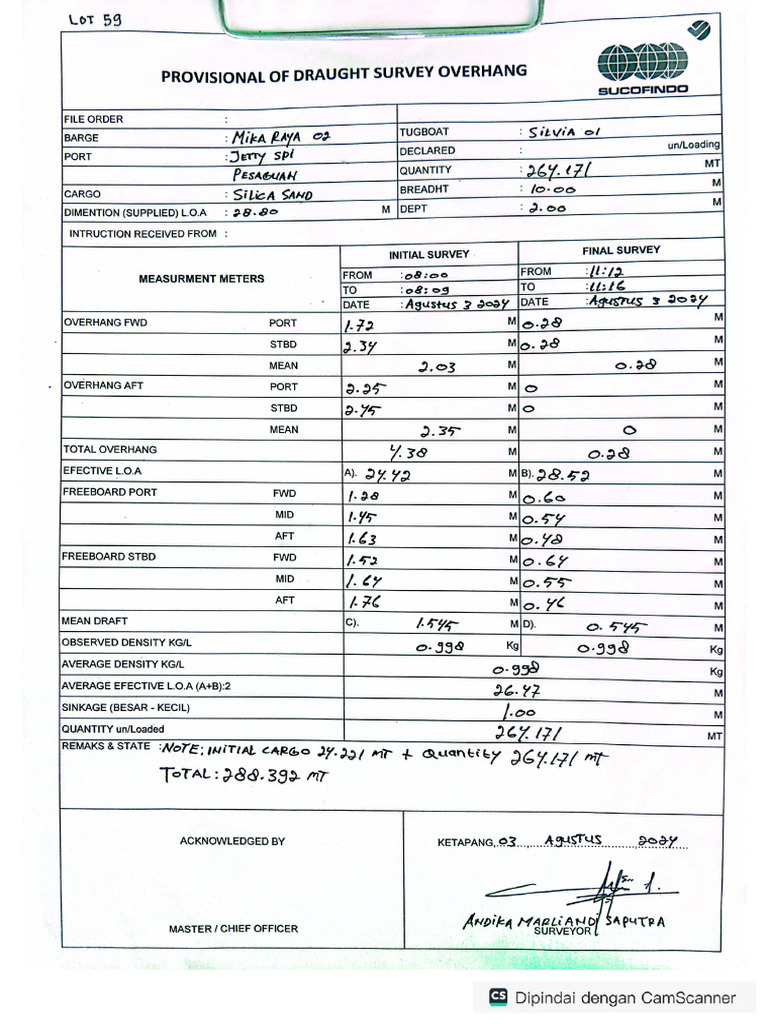 LOT 59
PROVISIONAL OF DRAUGHT SURVEY OVERHANG
SUCOFINDO
FILE ORDER :
BARGE : MIKA RAYA 02
TUGBOAT : SILVIA 01
PORT : JETTY SDI
DECLARED : un/Loading
PESAGUAN
QUANTITY : 264.171 MT
CARGO : SILICA SAND
BREADHT : 10.00 M
DIMENTION (SUPPLIED) L.O.A : 28.80 M
DEPT : 2.00 M
INTRUCTION RECEIVED FROM :
MEASURMENT METERS
INITIAL SURVEY
FINAL SURVEY
FROM : 08:00
FROM : 11:12
TO : 08:09
TO : 11:16
DATE : Agustus 3 2024
DATE : Agustus 3 2024
OVERHANG FWD PORT 1.72 M 0.28 M
STBD 2.34 M 0.28 M
MEAN 2.03 M 0.28 M
OVERHANG AFT PORT 2.25 M 0 M
STBD 2.45 M 0 M
MEAN 2.35 M 0 M
TOTAL OVERHANG 4.38 M 0.28 M
EFECTIVE L.O.A A). 24.42 M B). 28.52 M
FREEBOARD PORT FWD 1.28 M 0.60 M
MID 1.45 M 0.54 M
AFT 1.63 M 0.48 M
FREEBOARD STBD FWD 1.52 M 0.64 M
MID 1.64 M 0.55 M
AFT 1.76 M 0.46 M
MEAN DRAFT C). 1.545 M D). 0.545 M
OBSERVED DENSITY KG/L 0.998 Kg 0.998 Kg
AVERAGE DENSITY KG/L 0.998 Kg
AVERAGE EFECTIVE L.O.A (A+B):2 26.47 M
SINKAGE (BESAR - KECIL) 1.00 M
QUANTITY un/Loaded 264.171 MT
REMAKS & STATE : NOTE; INITIAL CARGO 24.221 MT + Quantity 264.171 MT
TOTAL : 288.392 MT
ACKNOWLEDGED BY
KETAPANG, 03 AGUSTUS 2024
MASTER / CHIEF OFFICER
ANDIKA MARLIANDI SAPUTRA
SURVEYOR
CS Dipindai dengan CamScanner